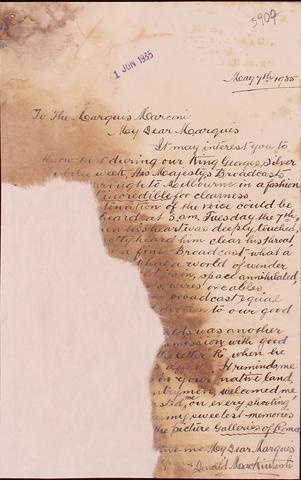 5907
1 JUN 1935
May 7th 1935
To The Marquis Marconi
My Dear Marquis
It may interest you to
know during our King Georges Silver
week, His Majesty's Broadcasts
through to Melbourne in a fashion
incredible for clearness
of the voice could be
heard at 5 am Tuesday the 7th
his heart was deeply touched,
heard him clear his throat,
a fine Broadcast what a
what a world of wonder
space annihilated,
wires or cables,
broadcast equal
to our good
was another
with good
letter R, when he
It reminds me
in your native land,
welcomed me
on every shooting
my sweetest memories
the picture Galleries of Rome
me My Dear Marquis
Donald Mackintosh